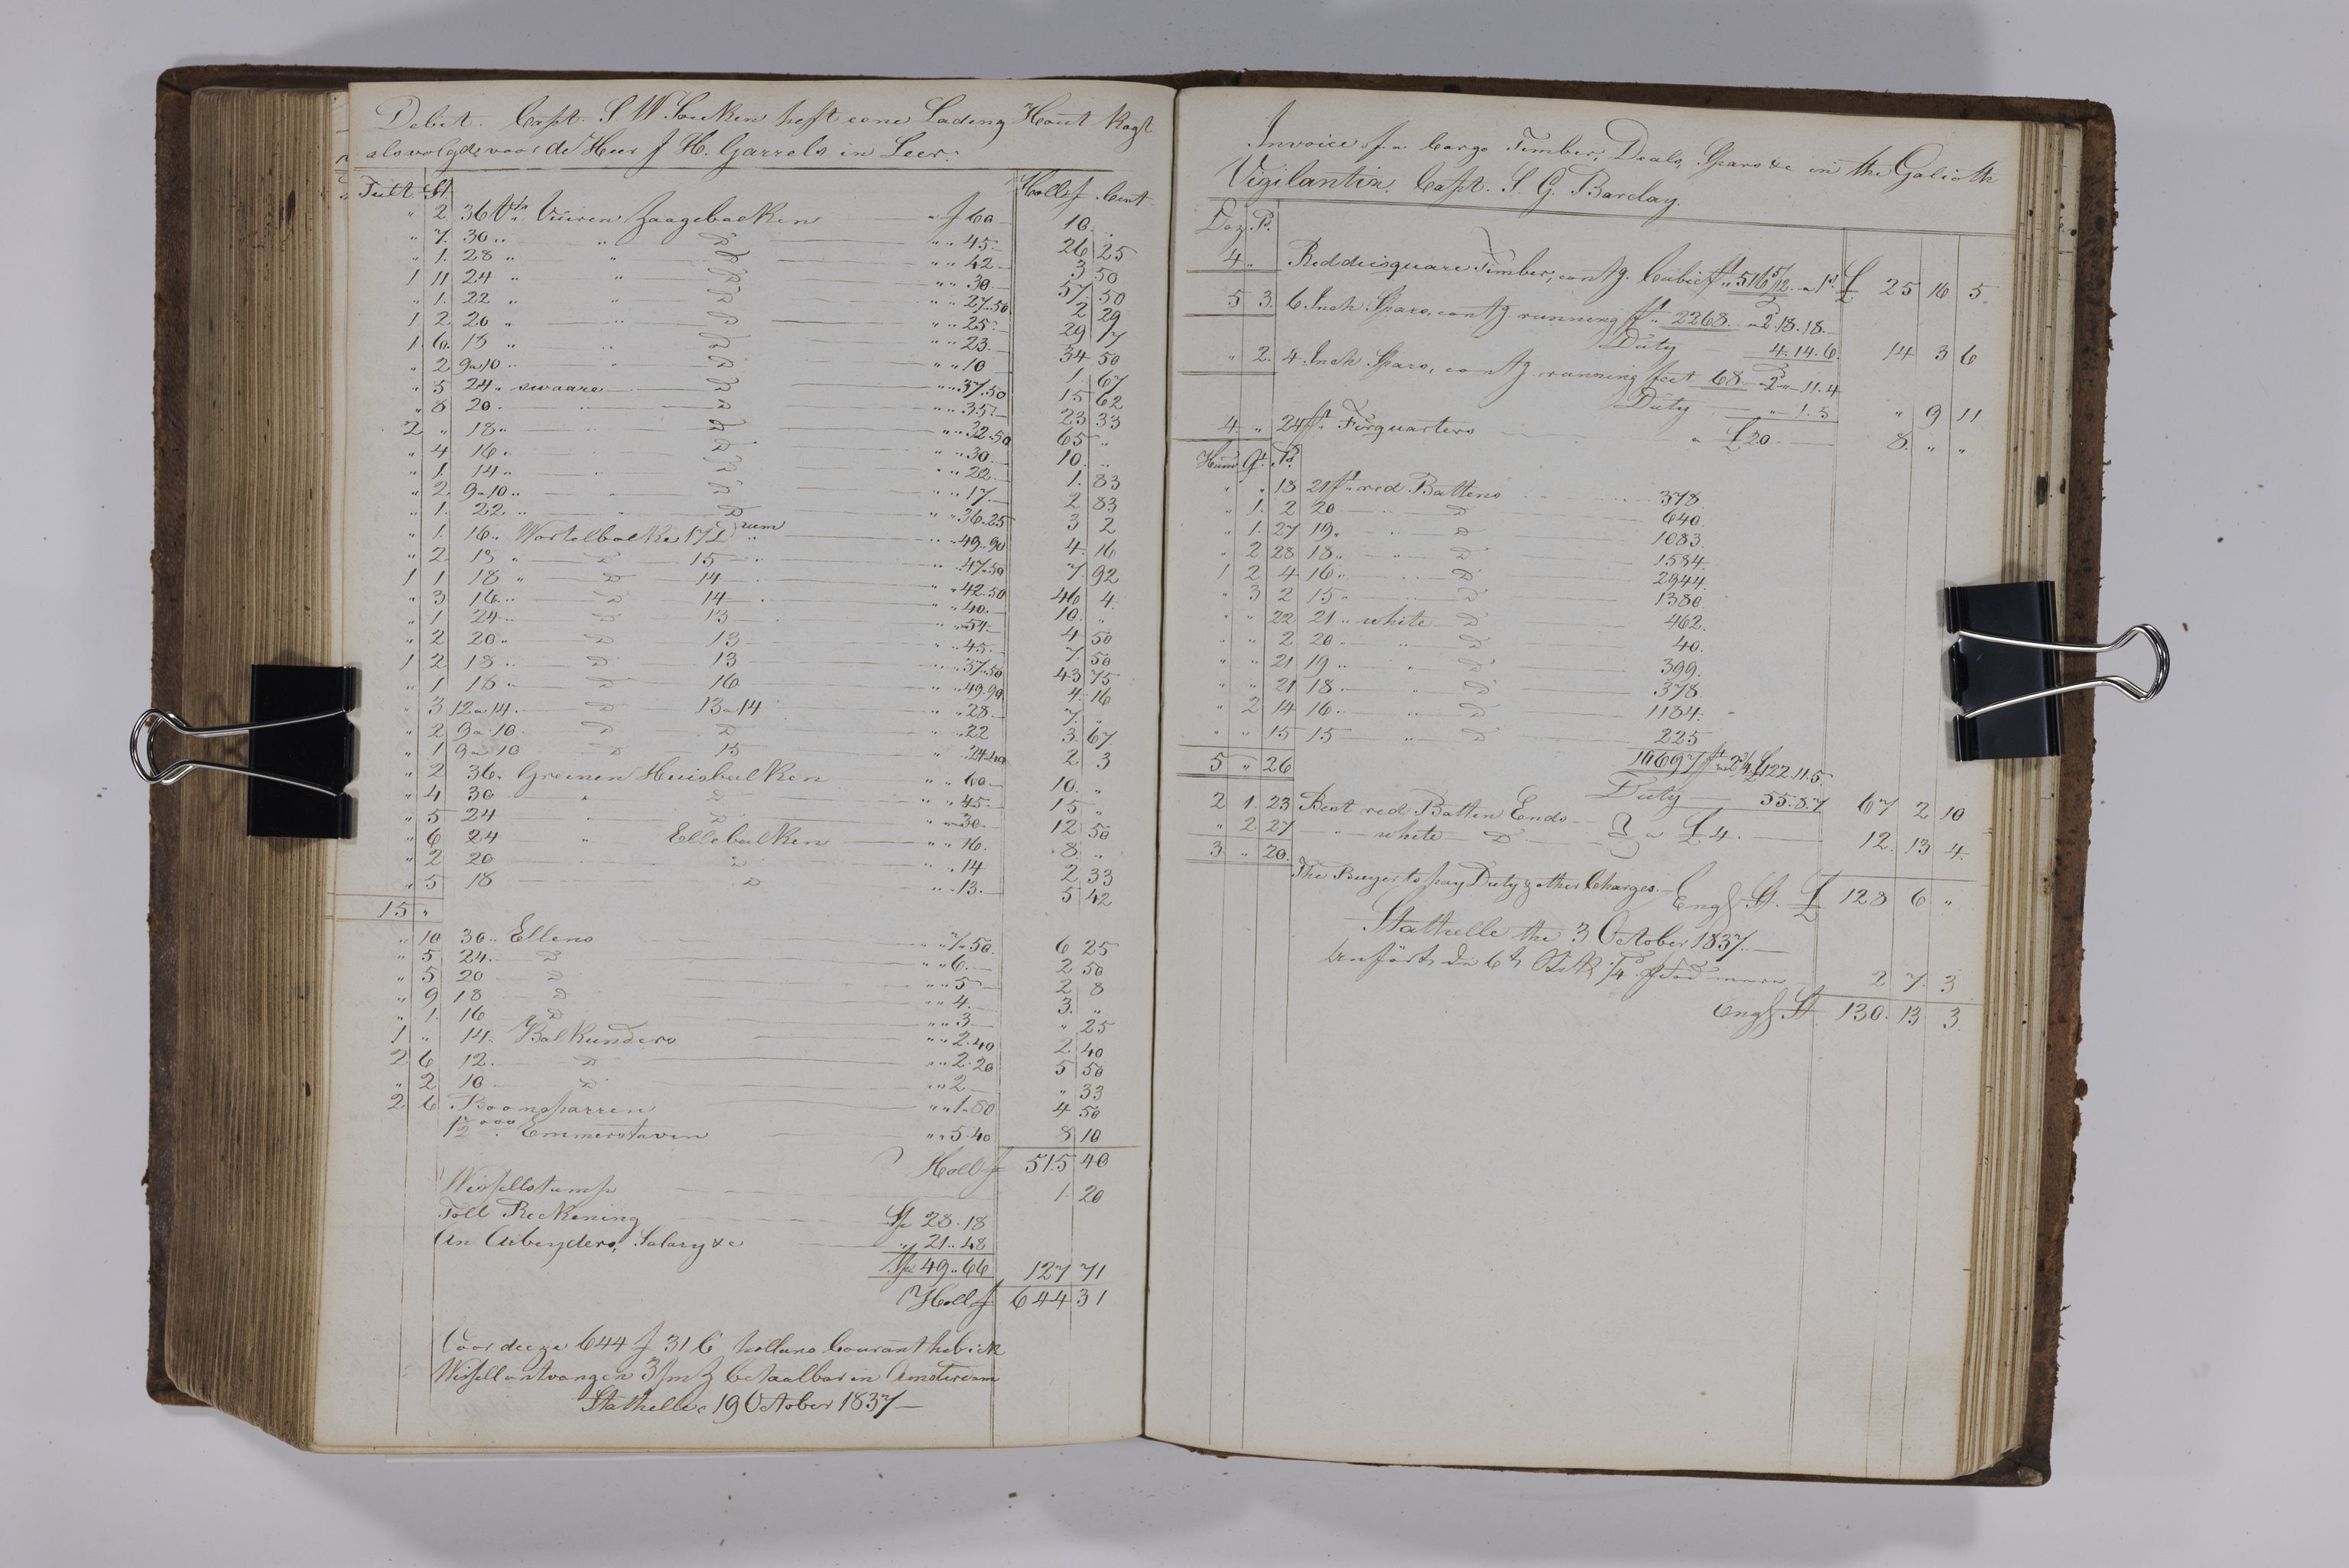 Debet. Capt. S W. Souken heft eene Lading Hout kagt
als volgdt voor de Heer J H. Garrels in Leer.
Tult St. Hollf Cent
" 2 36 Vt Vuuren Zaagebalken " f 60 10. "
" 7. 30 " " D " " 45. 26 25
" 1. 28 " " D " " 42 3 50
1 11 24 " " D " " 30. 57 50
" 1. 22 " " D " " 27.50 2 29
1 2 20 " " D " " 25. 29 17
1. 6. 18 " " D " " 23. 34 50
" 2 9 a 10 " D " " 10 1. 67
" 5 24 " swaare D " " 37.50 15 62
" 8 20 " " D " " 35. 23 33
2 " 18 " " D " " 32.50 65 "
" 4 16 " " D " " 30. 10. "
" 1. 14 " " D " " 22. 1. 83
" 2 9 a 10 " " D " " 17. 2 83
" 1. 22 " " D " " 36.25 3 2
" 1. 16 " Wortelbalke 17 D " " 49.90 4. 16
" 2. 18 " D 15 " " " 47.50 7 92
1 1 18 " D 14 " " 42.50 46 4.
" 3 16 " D 14 " " 40. 10. "
" 1 24 " D 13 " " 54. 4 50
" 2 20 " D 13 " " 45. 7. 50
1 2 18 " D 13 " " 37.50 43 75
" 1 18 " D 16 " " 49.90. 4. 16
" 3 12 a 14 D 13 a 14 " " 28. 7. "
" 2 9 a 10. D D " " 22 3. 67
" 1 9 a 10 D 15 " 24.40 2 3
" 2 36. Greinen Huisbalken " " 60. 10. "
" 4 30 " D " " 45. 15 "
" 5 24 " D " " 30. 12 50
" 6 24 " Ellebalken " " 16. 8 "
" 2 20 D " 14 2 33
" 5 18 D " 13. 5 42
15 "
" 10 30 " Ellens " " 7.50. 6 25
" 5 24. D " " 6. 2 50
" 5 20 D " " 5 2 8
" 9 18 D " " 4. 3. "
" 1. 16 D " " 3 " 25
1 " 14. Balkunders " " 2.40 2 40
2 6 12. D " " 2.20 5 50
" 2 10 D " " 2 " 33
2 6 Boonsparren " " 1.80 4 50
1½000 Emmerstaven " " 5.40 8 10
Hollf 515 40
Wissellstemp 1. 20
Toll Reckening Sp 28.18
An Arbeyders, Salary &c " 21..48
Sp 49..66 127 71
Hollf 644 31
Voor deeze 644 f 31 C hollans Courant heb ick
Wissell ontvangen 3/m betaalbar in Amsterdam
Stathelle, 19 October 1837
Invoice of a Cargo Timber, Deals, Spars &c in the Galioth
Vigilantia, Capt. S. G. Barclay.
Doz. Ps.
4 " Reddeisquare Timber, contg. Cubicft " 516 5/12. a 1s £ 25 16 5.
5 3. 6 Inch Spars, contg running ft " 2268. a 2 18.18.
Duty 4.14.6. 14 3 6
" 2. 4 Inch Spars, contg running feet 68 2 11.4
Duty " 1.5 " 9 11
4 " 24 ft Firquarters a £20 8. " "
Hund Qt. Ps.
" " 18 21 ft red Battens 378.
" 1. 2 20 D 640.
" 1. 27 19 " " D 1083.
" 2 28 18 " " D 1584.
1 2 4 16 " " D 2944.
" 3 2 15 " " D 1380.
" " 22 21 " white D 462.
" " 2 20 " D 40.
" " 21 19 " " D 399.
" " 21 18 " D 378.
" 2 14 16 " " D 1184.
" " 15 15 " D 225
5 " 26 10697 ft a 2¾ £122.11.5.
Duty 55.8.7 67 2 10
2 1. 23 Best red Batten Ends
" 2 27 " white D a £4. 12. 13 4.
3 " 20.
The Buyer to pay Duty & other Charges. Engl St. £ 128 6 "
Stathelle the 3 October 1837.
2 7. 3
Engl St 130. 13 3.